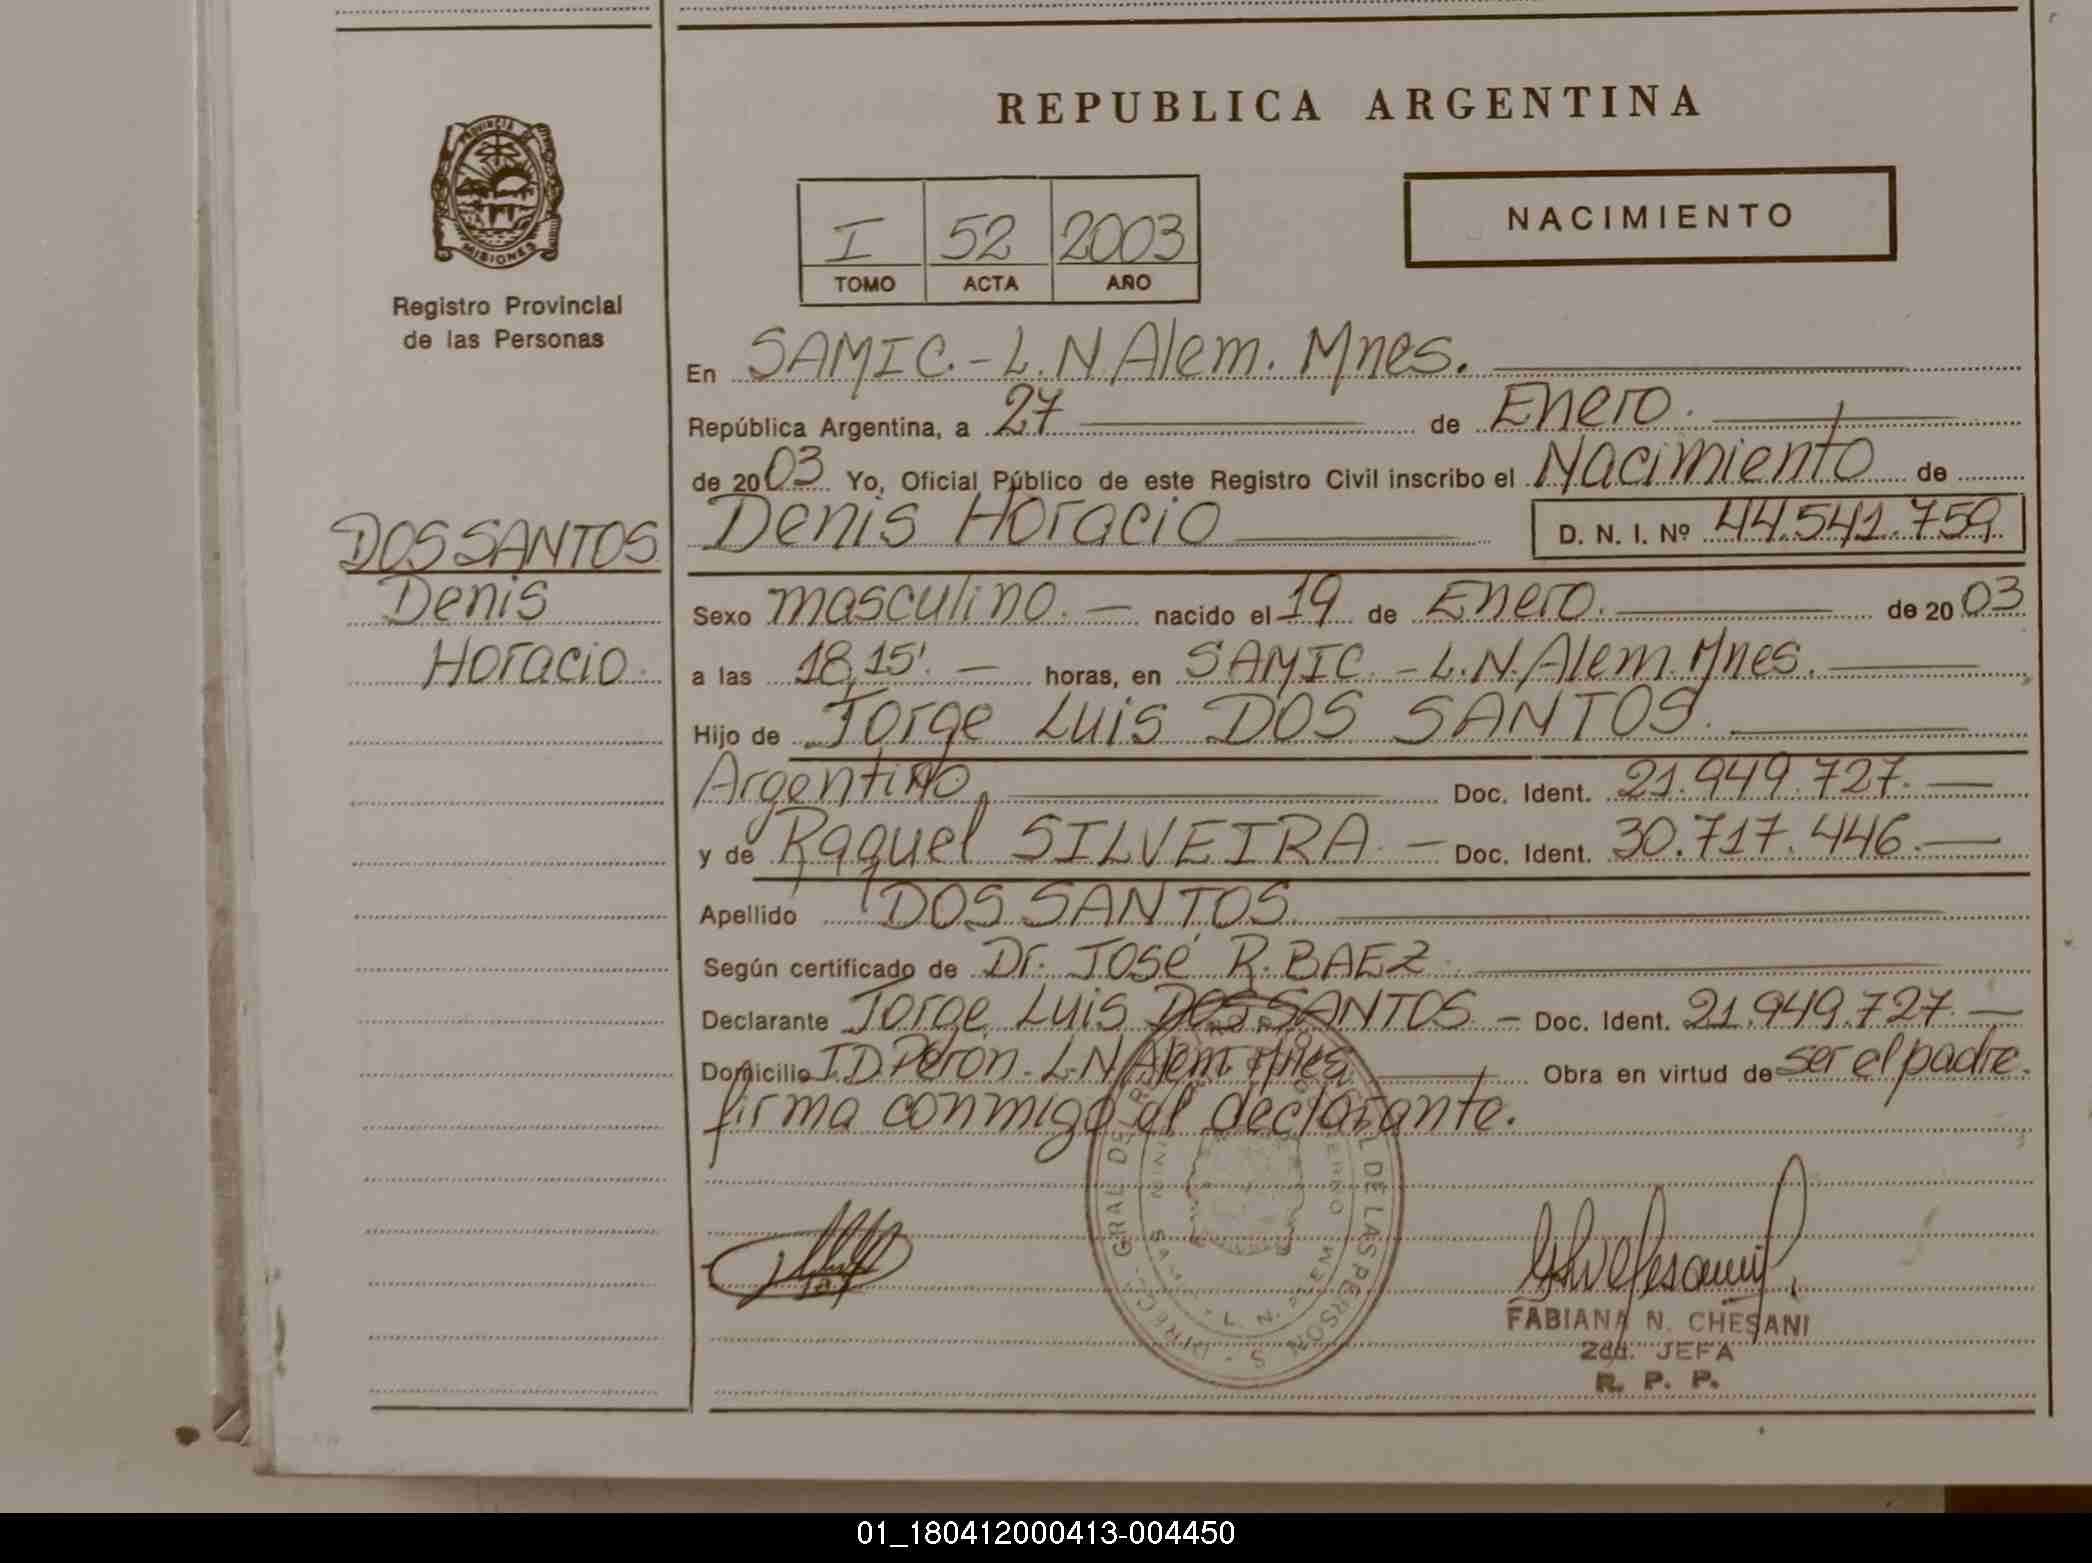 REPUBLICA ARGENTINA
PROVINCIA DE
MISIONES
Registro Provincial
de las Personas
I 52 2003
TOMO ACTA AÑO
NACIMIENTO
En SAMIC.-L.N.Alem. Mnes.
República Argentina, a 27 de Enero.
de 2003 Yo, Oficial Público de este Registro Civil inscribo el Nacimiento de
Denis Horacio D. N. I. Nº 44.541.759
DOS SANTOS
Denis
Horacio.
Sexo masculino. nacido el 19 de Enero. de 2003
a las 18,15'. horas, en SAMIC.-L.N.Alem.Mnes.
Hijo de Jorge Luis DOS SANTOS.
Argentino, Doc. Ident. 21.949.727.
y de Raquel SILVEIRA. Doc. Ident. 30.717.446.
Apellido DOS SANTOS.
Según certificado de Dr. José R. BAEZ.
Declarante Jorge Luis DOS SANTOS. Doc. Ident. 21.949.727.
Domicilio J.D.Perón. L.N.Alem. Mnes Obra en virtud de ser el padre.
firma conmigo el declarante.
GRAL DEL DE LAS PERSONAS
L. N. ALEM
FABIANA N. CHESANI
2da. JEFA
R. P. P.
01_180412000413-004450